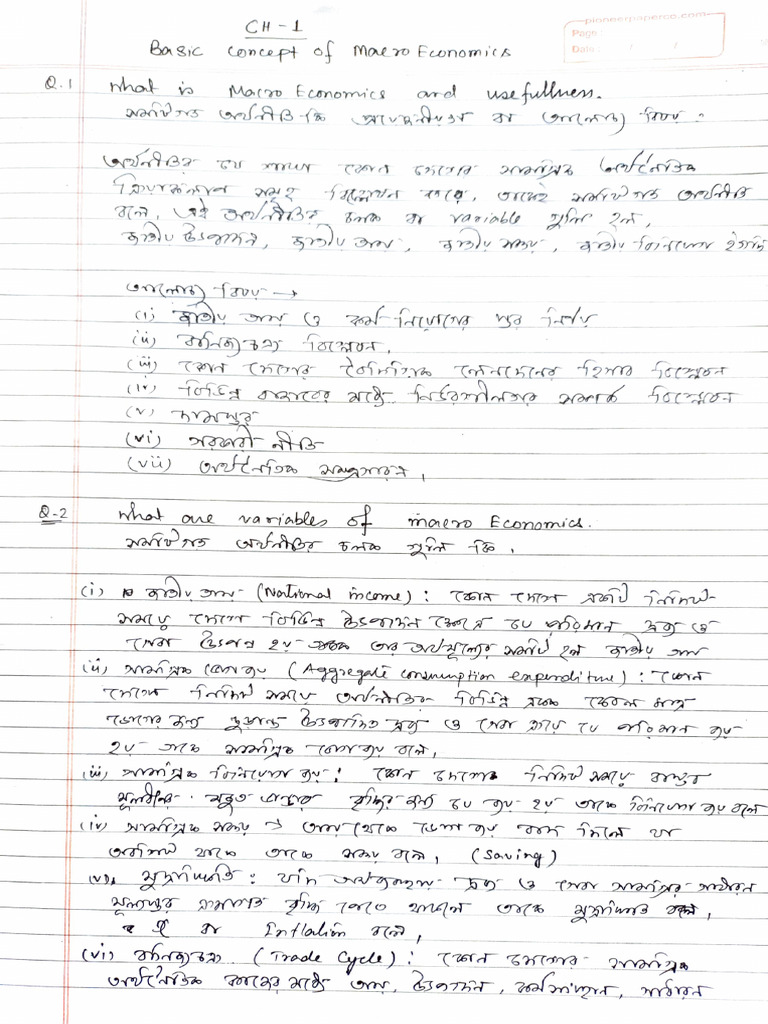 pioneerpaperco.com
Page :
Date : / /
CH - 1
Basic concept of Macro Economics
Q.1 What is Macro Economics and usefullness.
সমষ্টিগত অর্থনীতি কি প্রয়োজনীয়তা বা আলোচ্য বিষয় :
অর্থনীতির যে শাখা কোন দেশের সামগ্রিক অর্থনৈতিক
ক্রিয়াকলাপ সমূহ বিশ্লেষন করে, তাকেই সমষ্টিগত অর্থনীতি
বলে, এই অর্থনীতির চলক বা variable গুলি হল,
জাতীয় উৎপাদন, জাতীয় আয়, জাতীয় সঞ্চয়, জাতীয় বিনিয়োগ ইত্যাদি
আলোচ্য বিষয় →
(i) জাতীয় আয় ও কর্ম নিয়োগের স্তর নির্ণয়
(ii) বানিজ্যচক্র বিশ্লেষন,
(iii) কোন দেশের বৈদেশিক লেনদেনের হিসাব বিশ্লেষন
(iv) বিভিন্ন বাজারের মধ্যে নির্ভরশীলতার সম্পর্ক বিশ্লেষন
(v) দামস্তর
(vi) সরকারী নীতি
(vii) অর্থনৈতিক সম্প্রসারন,
Q-2 What are variables of macro Economics.
সমষ্টিগত অর্থনীতির চলক গুলি কি,
(i) জাতীয় আয় (National income) : কোন দেশে একটি নির্দিষ্ট
সময়ে দেশে বিভিন্ন উৎপাদন ক্ষেত্রে যে পরিমান দ্রব্য ও
সেবা উৎপন্ন হয় তার অর্থমূল্যের সমষ্টি হল জাতীয় আয়
(ii) সামগ্রিক ভোগব্যয় (Aggregate consumption expenditure) : কোন
দেশে নির্দিষ্ট সময়ে অর্থনীতির বিভিন্ন একক কেবল মাত্র
ভোগের জন্য চূড়ান্ত উৎপাদিত দ্রব্য ও সেবা ক্রয়ে যে পরিমান ব্যয়
হয় তাকে সামগ্রিক ভোগব্যয় বলে,
(iii) সামগ্রিক বিনিয়োগ ব্যয় : কোন দেশের নির্দিষ্ট সময়ে বাস্তব
মূলধনের মজুত ভান্ডার বৃদ্ধির জন্য যে ব্যয় হয় তাকে বিনিয়োগ ব্যয় বলে
(iv) সামগ্রিক সঞ্চয় → আয় থেকে ভোগ ব্যয় বাদ দিলে যা
অবশিষ্ট থাকে তাকে সঞ্চয় বলে, (Saving)
(v) মুদ্রাস্ফীতি : যদি অর্থব্যবস্থায় দ্রব্য ও সেবা সামগ্রির সাধারন
মূল্যস্তর ক্রমাগত বৃদ্ধি পেতে থাকলে তাকে মুদ্রাস্ফীতি বলে,
বা Inflation বলে,
(vi) বানিজ্যচক্র (Trade Cycle) : কোন দেশের সামগ্রিক
অর্থনৈতিক কাজের মধ্যে আয়, উৎপাদন, কর্মসংস্থান, সাধারন